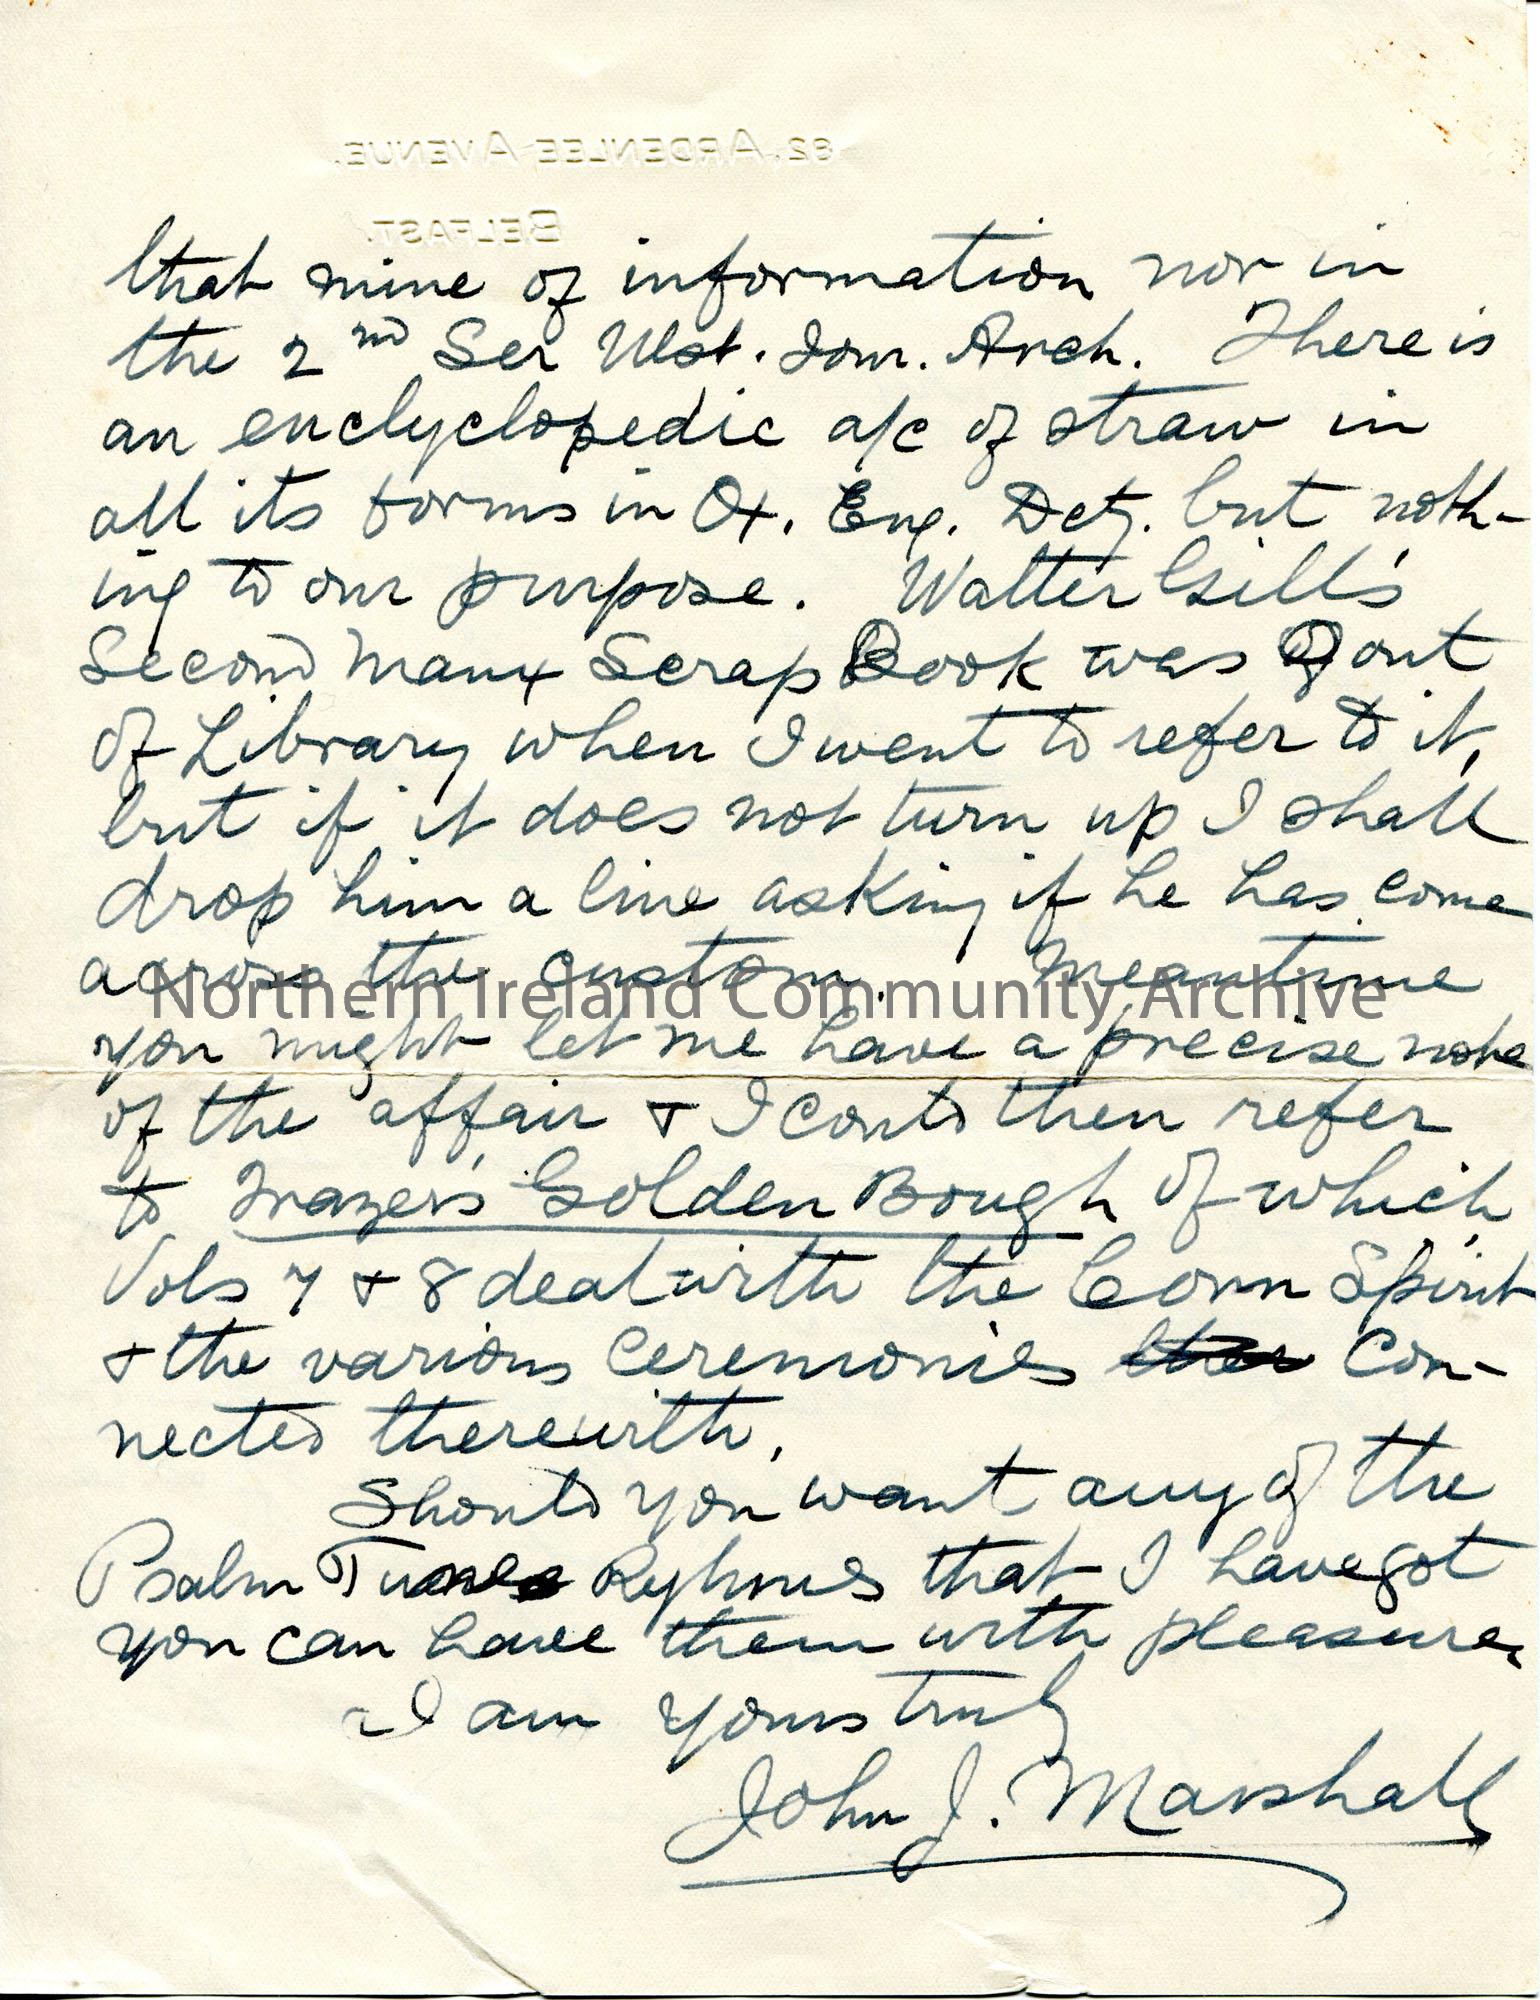 82, ARDENLEE AVENUE.
BELFAST.
that mine of information nor in
the 2nd Ser Ulst. Jour. Arch. There is
an enclyclopedic a/c of straw in
all its forms in Ox. Eng. Dcty. but noth-
ing to our purpose. Walter Gill's
Second Manx Scrap Book was out
of Library when I went to refer to it,
but if it does not turn up I shall
drop him a line asking if he has come
across the custom. Meantime
Northern Ireland Community Archive
you might let me have a precise note
of the affair & I could then refer
to Frazer's Golden Bough of which
Vols 7 & 8 deal with the Corn Spirit
& the various Ceremonies con-
nected therewith.
Should you want any of the
Psalm Tune Ryhmes that I have got
you can have them with pleasure.
I am yours truly
John J. Marshall